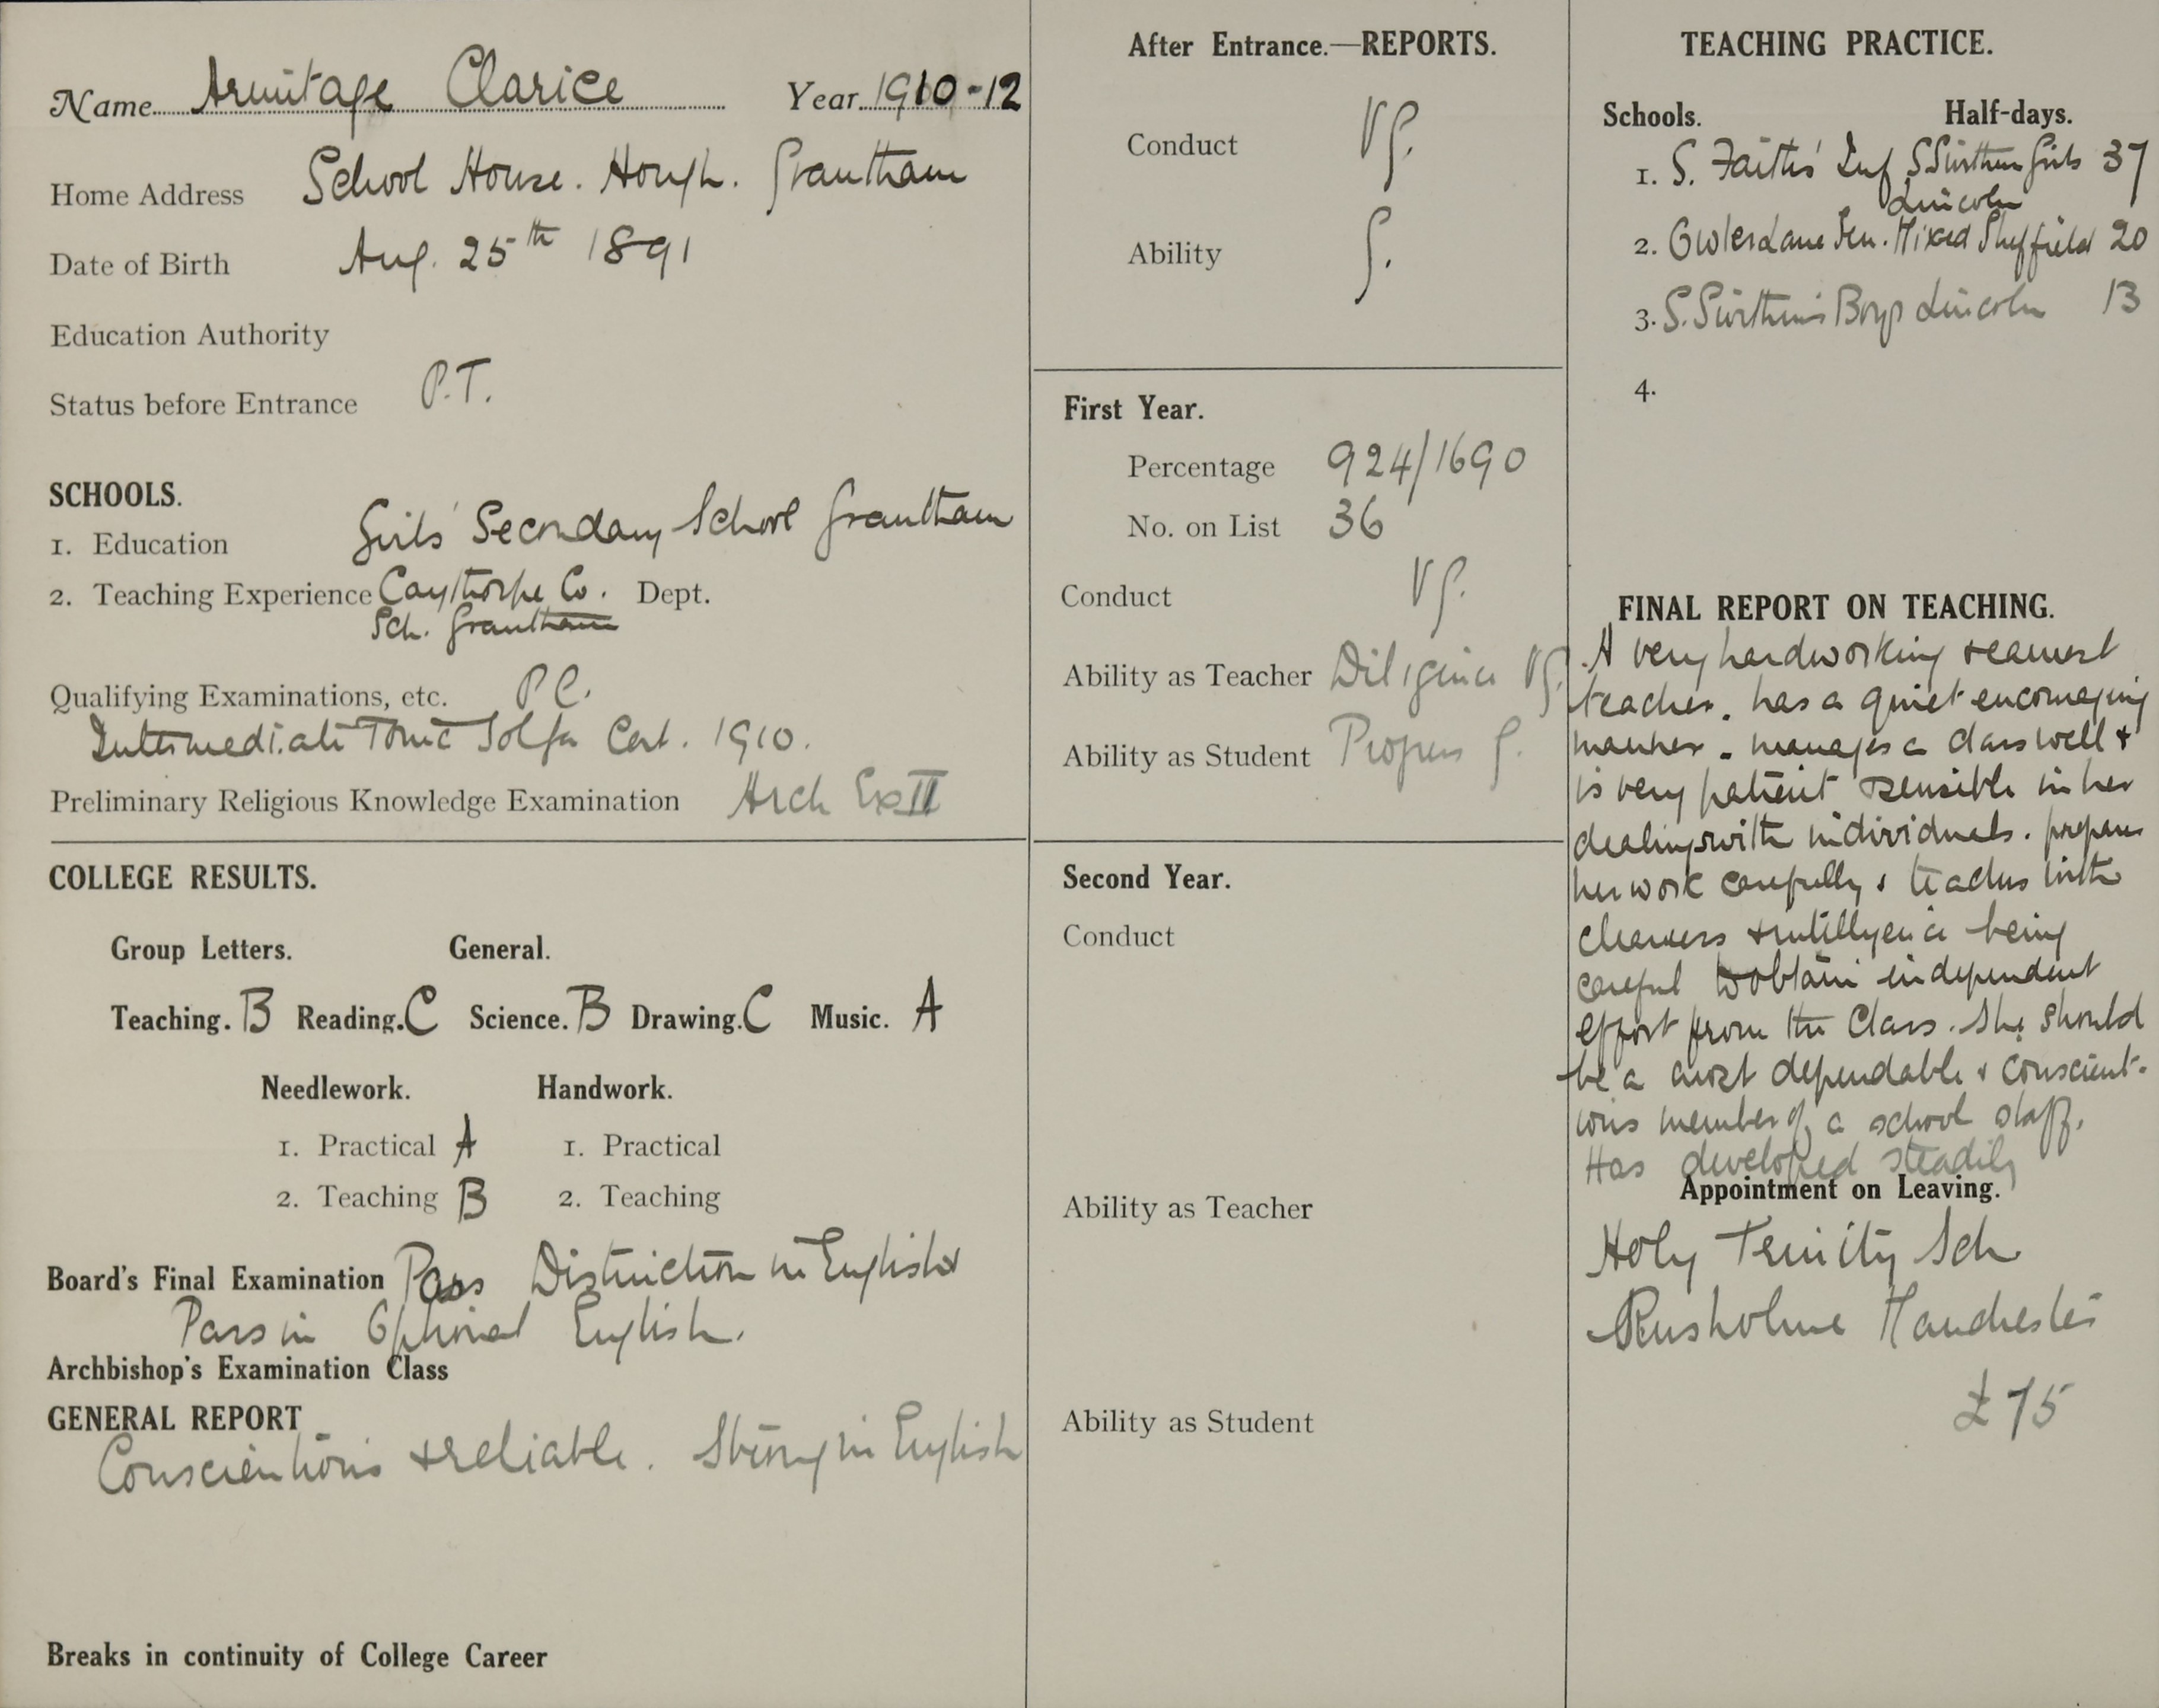 Name Armitage Clarice Year 1910-12
Home Address School House. Hough. Grantham
Date of Birth Aug. 25th 1891
Education Authority
Status before Entrance P.T.
SCHOOLS.
1. Education Girls' Secondary School Grantham
2. Teaching Experience Caythorpe Co. Dept.
Sch. Grantham
Qualifying Examinations, etc. P.C.
Intermediate Tonic Solfa Cert. 1910.
Preliminary Religious Knowledge Examination Arch Ex II
COLLEGE RESULTS.
Group Letters. General.
Teaching. B Reading. C Science. B Drawing. C Music. A
Needlework. Handwork.
1. Practical A 1. Practical
2. Teaching B 2. Teaching
Board's Final Examination Pass Distinction in English &
Pass in Optional English.
Archbishop's Examination Class
GENERAL REPORT
Conscientious & reliable. Strong in English
Breaks in continuity of College Career
After Entrance.—REPORTS.
Conduct VG.
Ability G.
First Year.
Percentage 924/1690
No. on List 36
Conduct VG.
Ability as Teacher Diligence VG.
Ability as Student Progress G.
Second Year.
Conduct
Ability as Teacher
Ability as Student
TEACHING PRACTICE.
Schools. Half-days.
1. S. Faith's Inf S. Swithun Girls 37
Lincoln
2. Owler Lane Jun. Mixed Sheffield 20
3. S. Swithun's Boys Lincoln 13
4.
FINAL REPORT ON TEACHING.
A very hardworking & earnest
teacher. has a quiet encouraging
manner. manages a class well &
is very patient & sensible in her
dealings with individuals. prepares
her work carefully & teaches with
clearness & intelligence being
careful to obtain independent
effort from the Class. She should
be a most dependable & conscient-
ious member of a school staff.
Has developed steadily
Appointment on Leaving.
Holy Trinity Sch
Rusholme Manchester
£75